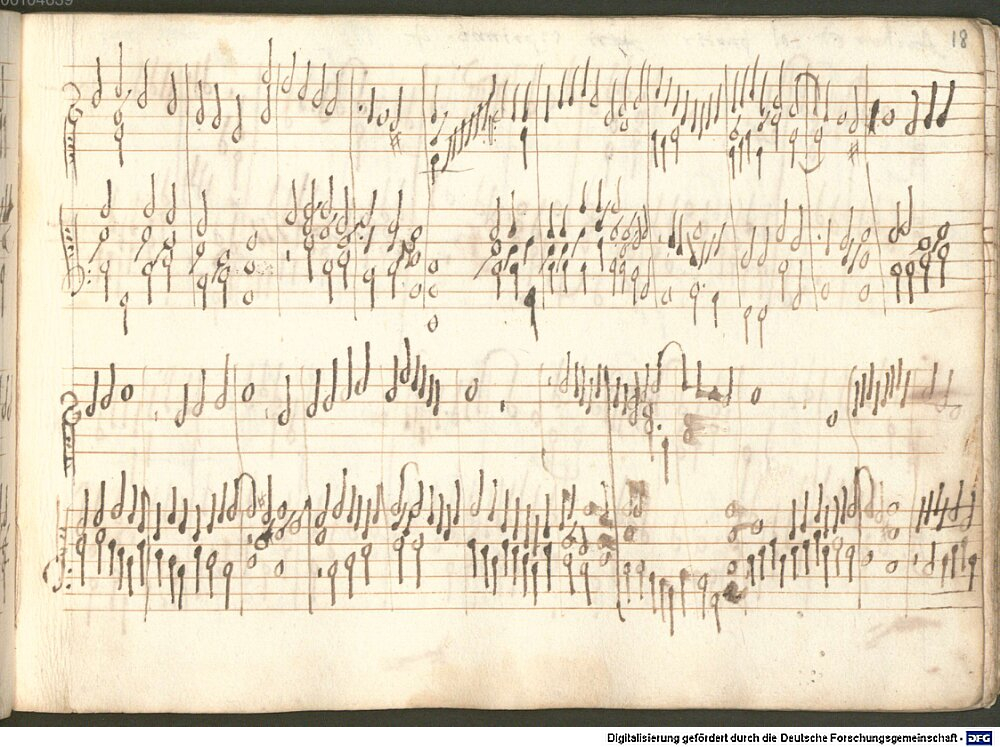 00104639
18
Digitalisierung gefördert durch die Deutsche Forschungsgemeinschaft - DFG